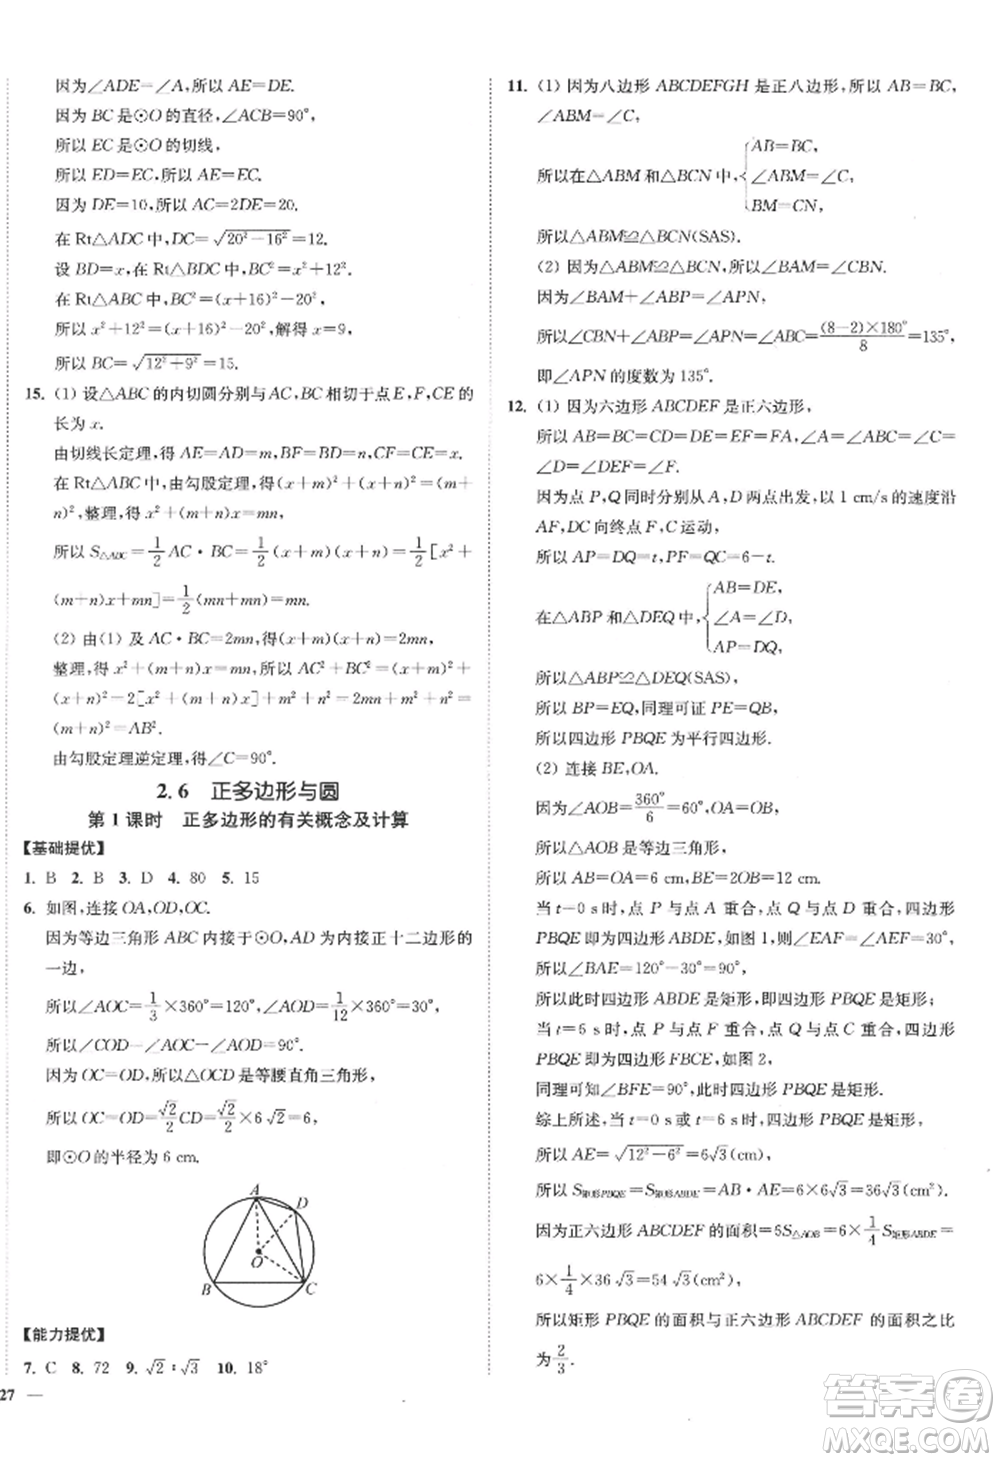 因为∠ADE=∠A,所以AE=DE.
因为BC是⊙O的直径,∠ACB=90°,
所以EC是⊙O的切线,
所以ED=EC,所以AE=EC.
因为DE=10,所以AC=2DE=20.
在Rt△ADC中,DC=√(20²-16²)=12.
设BD=x,在Rt△BDC中,BC²=x²+12²,
在Rt△ABC中,BC²=(x+16)²-20²,
所以x²+12²=(x+16)²-20²,解得x=9,
所以BC=√(12²+9²)=15.
15. (1) 设△ABC的内切圆分别与AC,BC相切于点E,F,CE的
长为x.
由切线长定理,得AE=AD=m,BF=BD=n,CF=CE=x.
在Rt△ABC中,由勾股定理,得(x+m)²+(x+n)²=(m+
n)²,整理,得x²+(m+n)x=mn,
所以S△ABC=1/2 AC·BC=1/2(x+m)(x+n)=1/2[x²+
(m+n)x+mn]=1/2(mn+mn)=mn.
(2) 由(1)及AC·BC=2mn,得(x+m)(x+n)=2mn,
整理,得x²+(m+n)x=mn,所以AC²+BC²=(x+m)²+
(x+n)²=2[x²+(m+n)x]+m²+n²=2mn+m²+n²=
(m+n)²=AB².
由勾股定理逆定理,得∠C=90°.
2.6 正多边形与圆
第1课时 正多边形的有关概念及计算
【基础提优】
1. B 2. B 3. D 4. 80 5. 15
6. 如图,连接OA,OD,OC.
因为等边三角形ABC内接于⊙O,AD为内接正十二边形的
一边,
所以∠AOC=1/3×360°=120°,∠AOD=1/12×360°=30°,
所以∠COD=∠AOC-∠AOD=90°.
因为OC=OD,所以△OCD是等腰直角三角形,
所以OC=OD=√2/2 CD=√2/2×6√2=6,
即⊙O的半径为6 cm.
A
D
O
B
C
【能力提优】
7. C 8. 72 9. √2∶√3 10. 18°
27 —
11. (1) 因为八边形ABCDEFGH是正八边形,所以AB=BC,
∠ABM=∠C.
所以在△ABM和△BCN中,{AB=BC,
∠ABM=∠C,
BM=CN,
所以△ABM≌△BCN(SAS).
(2) 因为△ABM≌△BCN,所以∠BAM=∠CBN.
因为∠BAM+∠ABP=∠APN,
所以∠CBN+∠ABP=∠APN=∠ABC=(8-2)×180°/8=135°,
即∠APN的度数为135°.
12. (1) 因为六边形ABCDEF是正六边形,
所以AB=BC=CD=DE=EF=FA,∠A=∠ABC=∠C=
∠D=∠DEF=∠F.
因为点P,Q同时分别从A,D两点出发,以1 cm/s的速度沿
AF,DC向终点F,C运动,
所以AP=DQ=t,PF=QC=6-t.
在△ABP和△DEQ中,{AB=DE,
∠A=∠D,
AP=DQ,
所以△ABP≌△DEQ(SAS),
所以BP=EQ,同理可证PE=QB,
所以四边形PBQE为平行四边形.
(2) 连接BE,OA.
则∠AOB=360°/6=60°,
所以△AOB是等边三角形,
所以AB=OA=6 cm,BE=2OB=12 cm.
当t=0 s时,点P与点A重合,点Q与点D重合,四边形
PBQE即为四边形ABDE,如图1,∠EAF=∠AEF=30°,
所以∠BAE=120°-30°=90°,
所以此时四边形ABDE是矩形,即四边形PBQE是矩形;
当t=6 s时,点P与点F重合,点Q与点C重合,四边形
PBQE即为四边形FBCE,如图2,
同理可知∠BFE=90°,此时四边形PBQE是矩形.
综上所述,当t=0 s或t=6 s时,四边形PBQE是矩形,
所以AE=√(12²-6²)=6√3(cm),
所以S矩形PBQE=S矩形ABDE=AB·AE=6×6√3=36√3(cm²).
因为正六边形ABCDEF的面积=6S△AOB=6×1/4 S矩形ABDE=
6×1/4×36√3=54√3(cm²),
所以矩形PBQE的面积与正六边形ABCDEF的面积之比
为2/3.
答案圈
MXQE.COM